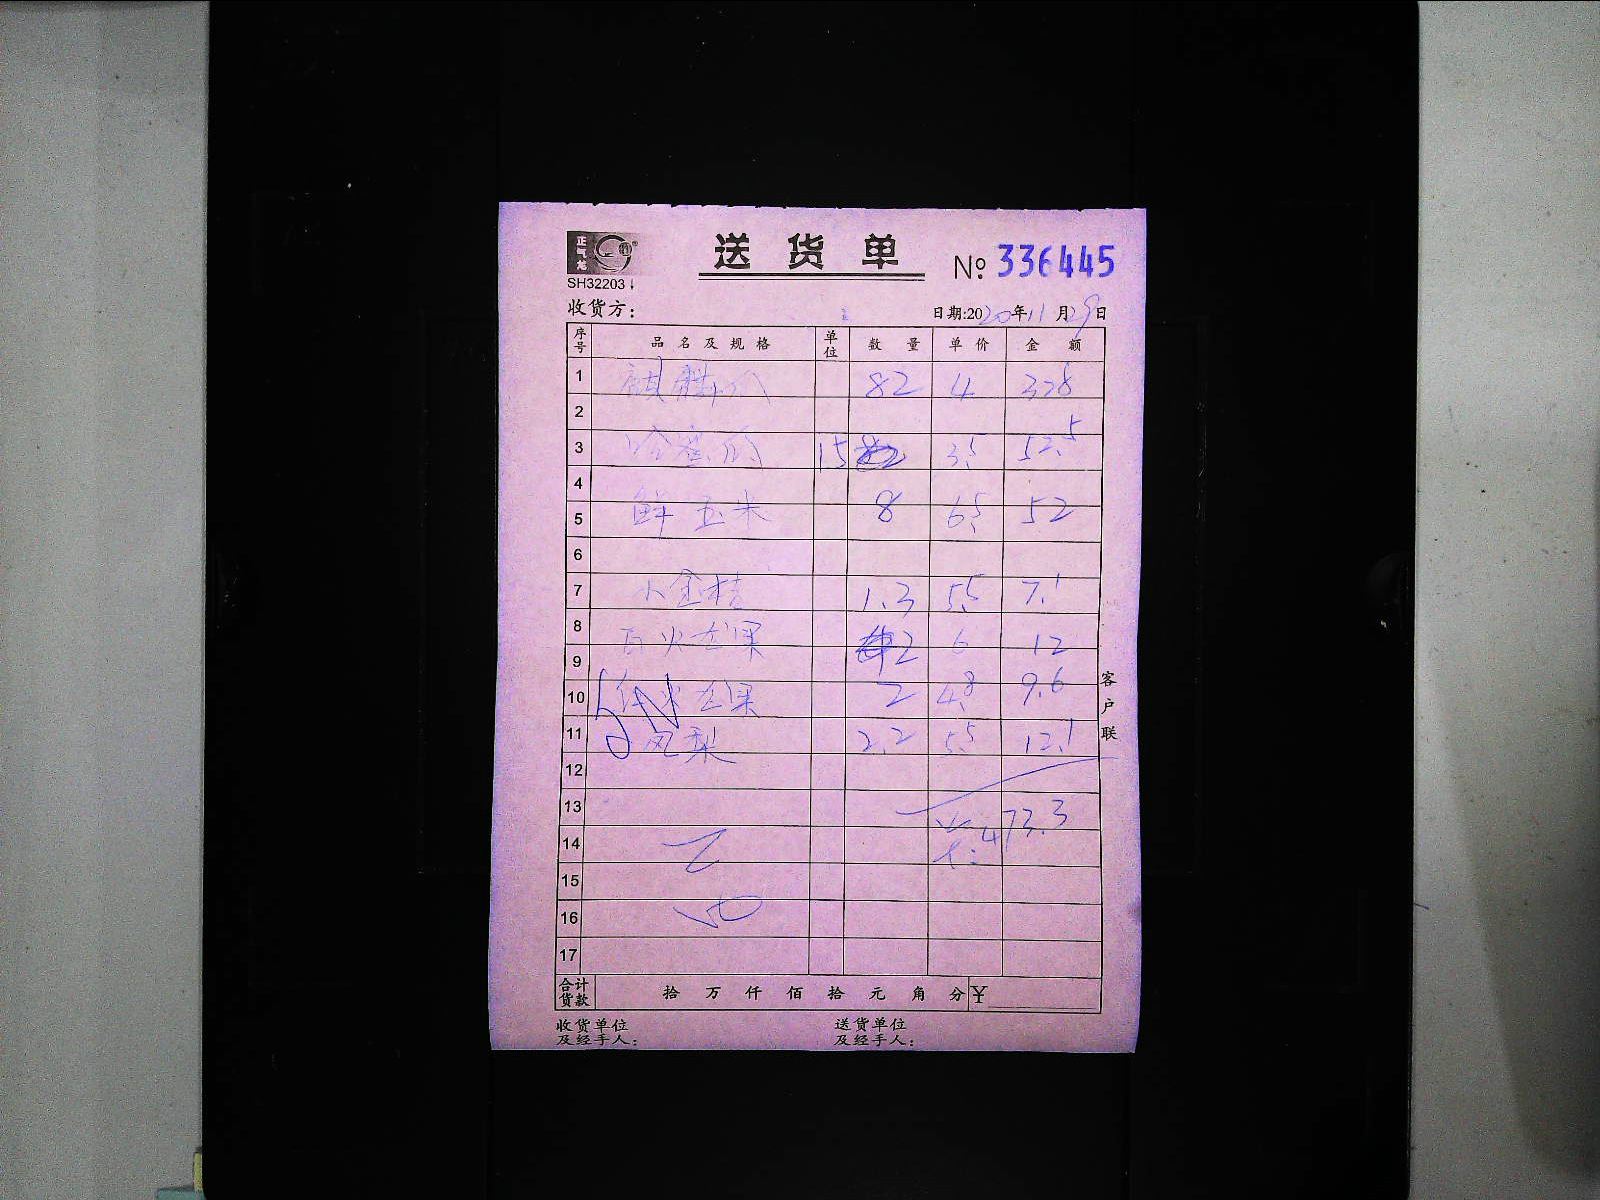 正气龙
送货单 № 336445
SH32203
收货方: 日期:2020年11月29日
序号 品名及规格 单位 数量 单价 金额
1 麒麟瓜 82 4 328
2
3 哈密瓜 15 3.5 52.5
4
5 鲜玉米 8 6.5 52
6
7 小金桔 1.3 5.5 7.1
8 白火龙果 2 6 12
9
10 红火龙果 2 4.8 9.6
11 凤梨 2.2 5.5 12.1
12
13 473.3
14
15
16
17
合计货款 拾 万 仟 佰 拾 元 角 分 ¥
客户联
收货单位及经手人: 送货单位及经手人: